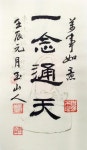 萬事如意
一念通天
壬辰元月玉山人